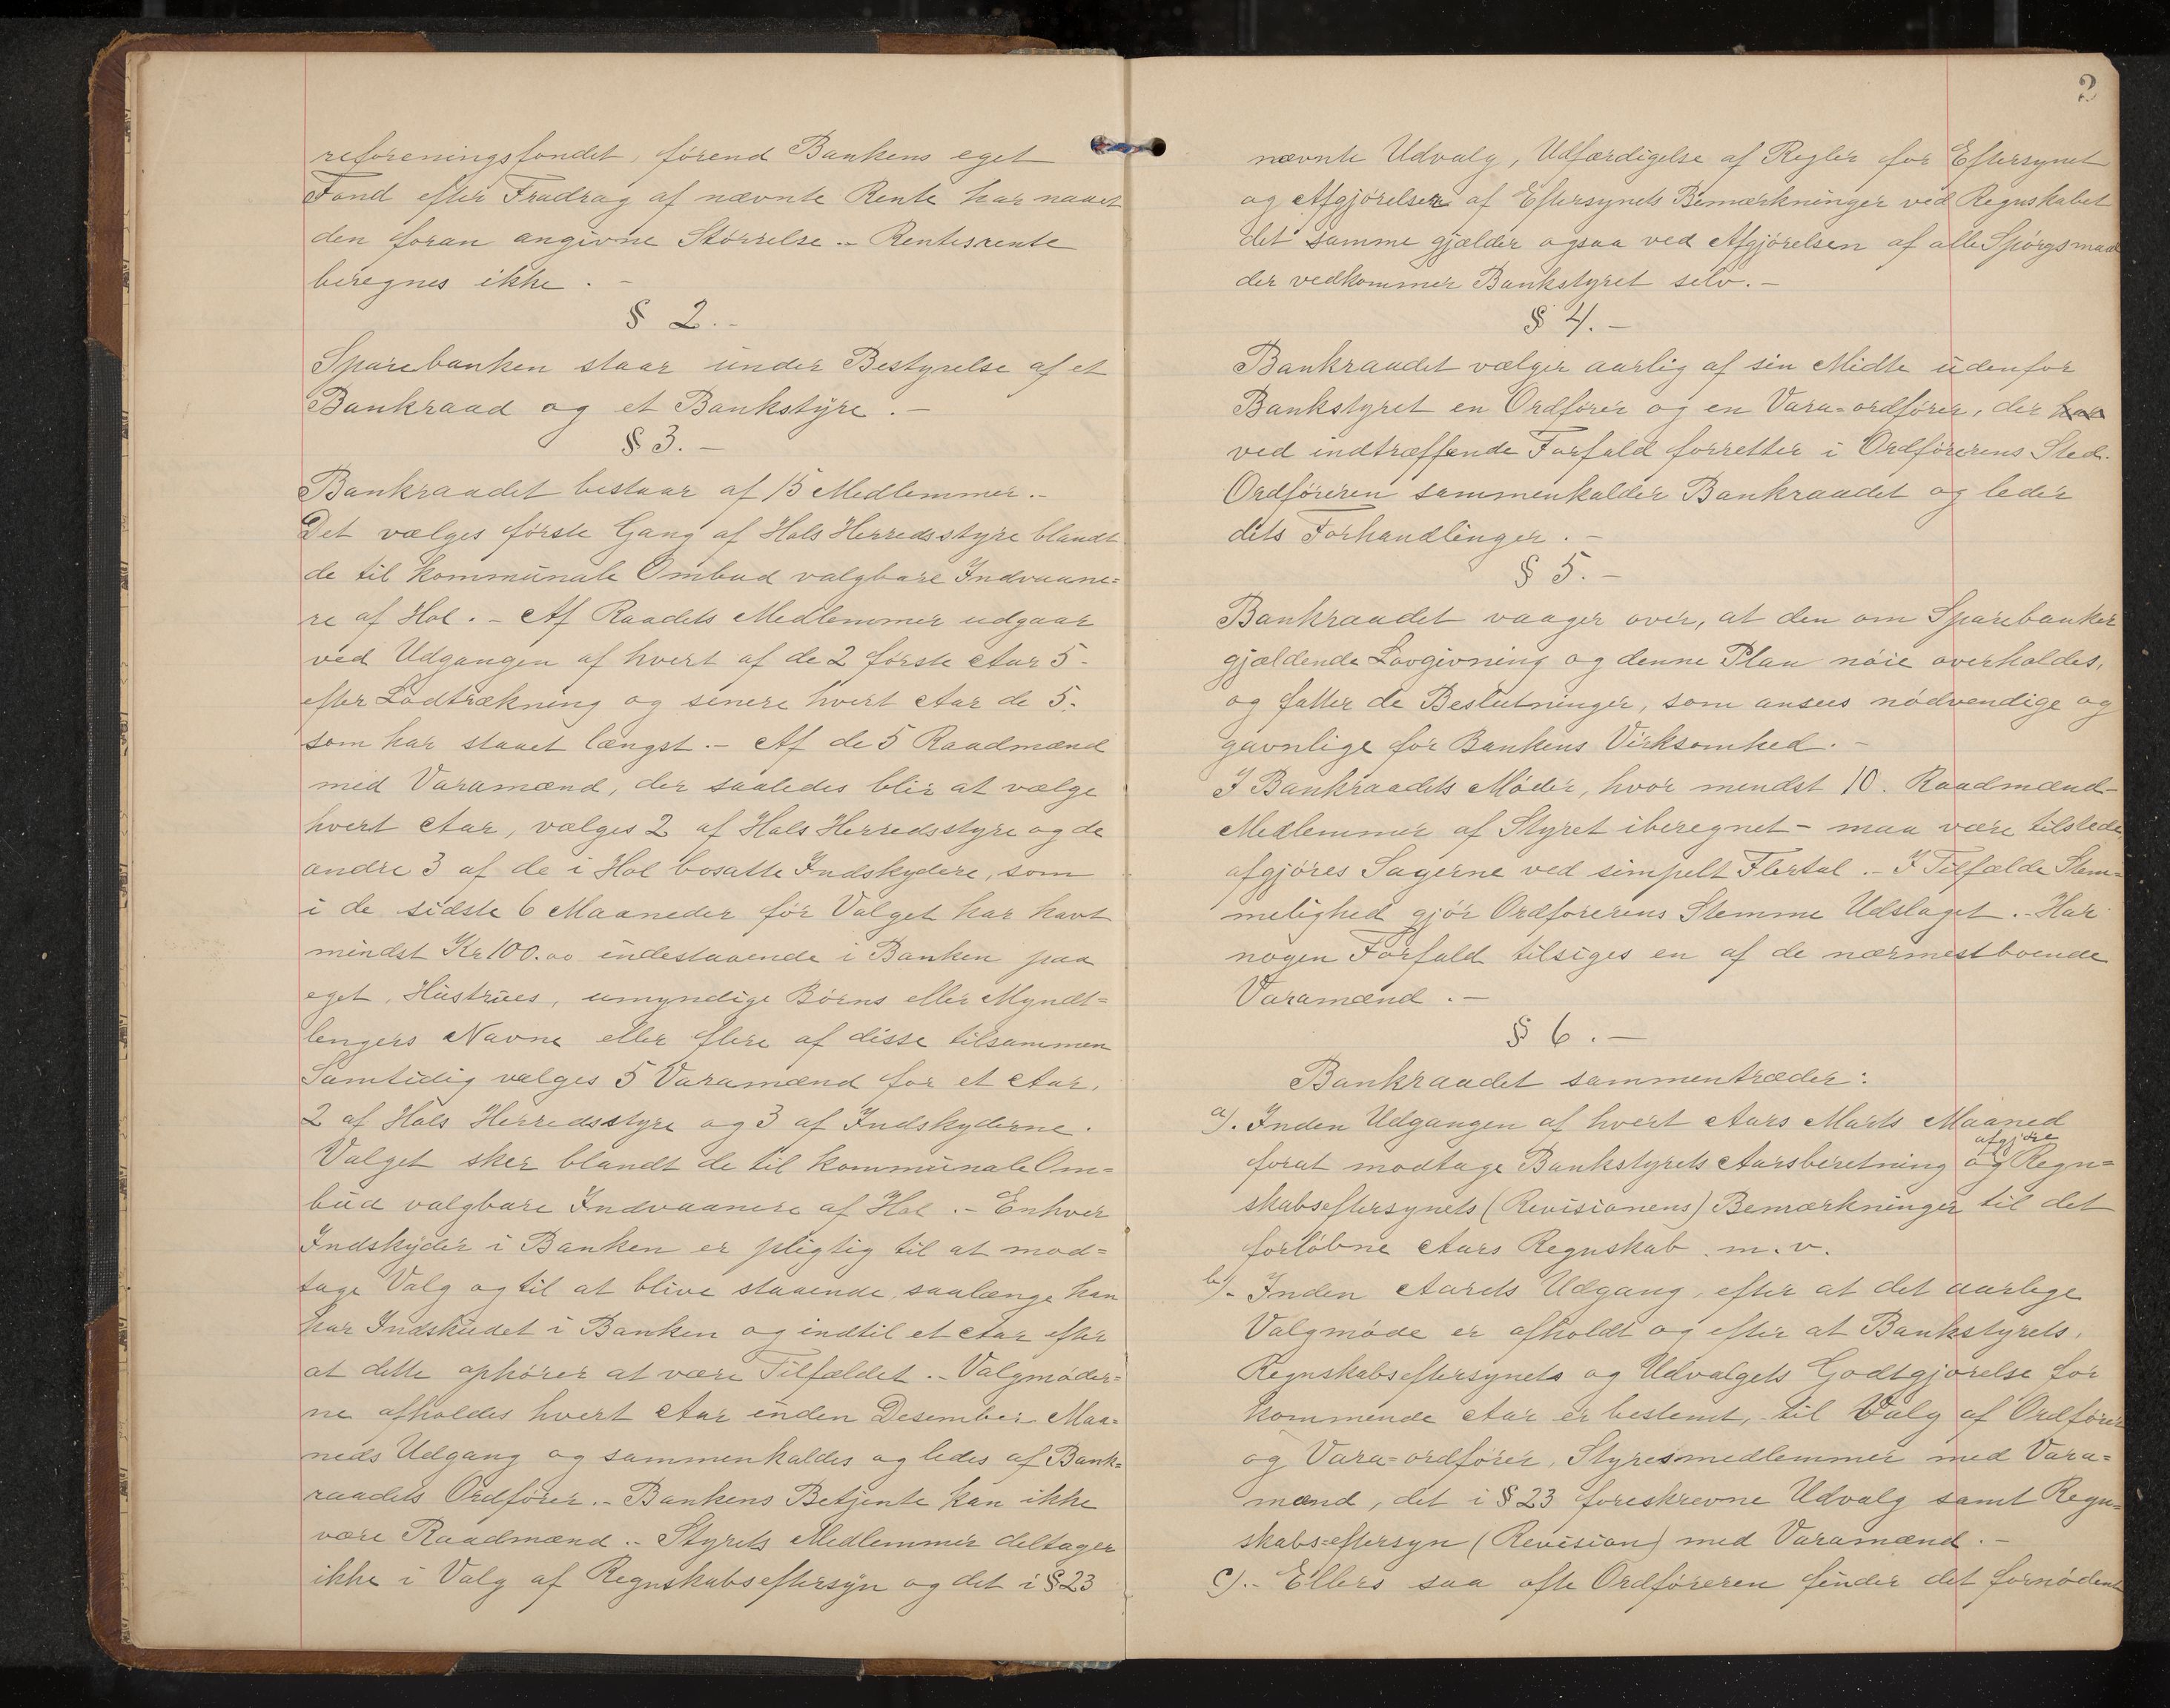 reforeningsfondet, förend Bankens eget
Fond efter Fradrag af nævnte Rente har naaet
den foran angivne Störrelse.- Rentesrente
beregnes ikke.-
§ 2.-
Sparebanken staar under Bestyrelse af et
Bankraad og et Bankstyre.-
§ 3.-
Bankraadet bestaar af 15 Medlemmer.-
Det vælges förste Gang af Hols Herredsstyre blandt
de til kommunale Ombud valgbare Indvaane=
re af Hol.- Af Raadets Medlemmer udgaar
ved Udgangen af hvert af de 2 förste Aar 5-
efter Lodtrækning og senere hvert Aar de 5-
som har staaet længst.- Af de 5 Raadmænd
med Varamænd, der saaledes blir at vælge
hvert Aar, vælges 2 af Hols Herredsstyre og de
andre 3 af de i Hol bosatte Indskydere, som
i de sidste 6 Maaneder för Valget har havt
mindst Kr 100.00 indestaaende i Banken paa
eget, Hustrues, umyndige Börns eller Myndt=
lengers Navne eller flere af disse tilsammen
Samtidig vælges 5 Varamænd for et Aar,
2 af Hols Herredsstyre og 3 af Indskyderne.
Valget sker blandt de til kommunale Om=
bud valgbare Indvaanere af Hol.- Enhver
Indskyder i Banken er pligtig til at mod=
tage Valg og til at blive staaende, saalænge han
har Indskudet i Banken og indtil et Aar efter
at dette ophörer at være Tilfældet.- Valgmöder=
ne afholdes hvert Aar inden Desember Maa=
neds Udgang og sammenkaldes og ledes af Bank=
raadets Ordförer.- Bankens Betjente kan ikke
være Raadmænd.- Styrets Medlemmer deltager
ikke i Valg af Regnskabseftersyn og det i § 23
2
nævnte Udvalg, Udfærdigelse af Regler for Eftersynet
og Afgjörelser af Eftersynets Bemærkninger ved Regnskabet
det samme gjælder ogsaa ved Afgjörelsen af alle Spörgsmaal
der vedkommer Bankstyret selv.-
§ 4.-
Bankraadet vælger aarlig af sin Midte udenfor
Bankstyret en Ordförer og en Vara=ordförer, der har
ved indtræffende Forfald forretter i Ordförerens Sted.
Ordföreren sammenkalder Bankraadet og leder
dets Forhandlinger.-
§ 5.-
Bankraadet vaager over, at den om Sparebanker
gjældende Lovgivning og denne Plan nöie overholdes,
og fatter de Beslutninger, som ansees nödvendige og
gavnlige for Bankens Virksomhed.-
I Bankraadets Möder, hvor mindst 10. Raadmænd-
Medlemmer af Styret iberegnet- maa være tilstede,
afgjöres Sagerne ved simpelt Flertal.- I Tilfælde Stem=
melighed gjör Ordförerens Stemme Udslaget.- Har
nogen Forfald tilsiges en af de nærmestboende
Varamænd.-
§ 6.-
Bankraadet sammentræder:
a). Inden Udgangen af hvert Aars Marts Maaned
afgjöre
forat modtage Bankstyrets Aarsberetning og Regn=
skabseftersynets (Revisionens) Bemærkninger til det
forlöbne Aars Regnskab m.v.
b).- Inden Aarets Udgang, efter at det aarlege
Valgmöde er afholdt og efter at Bankstyrets,
Regnskabseftersynets og Udvalgets Godtgjörelse for
kommende Aar er bestemt, til Valg af Ordförer
og Vara=ordförer, Styresmedlemmer med Vara=
mænd, det i § 23 foreskrevne Udvalg samt Regn=
skabs=eftersyn (Revision) med Varamænd.-
c).- Ellers saa ofte Ordföreren finder det fornödent